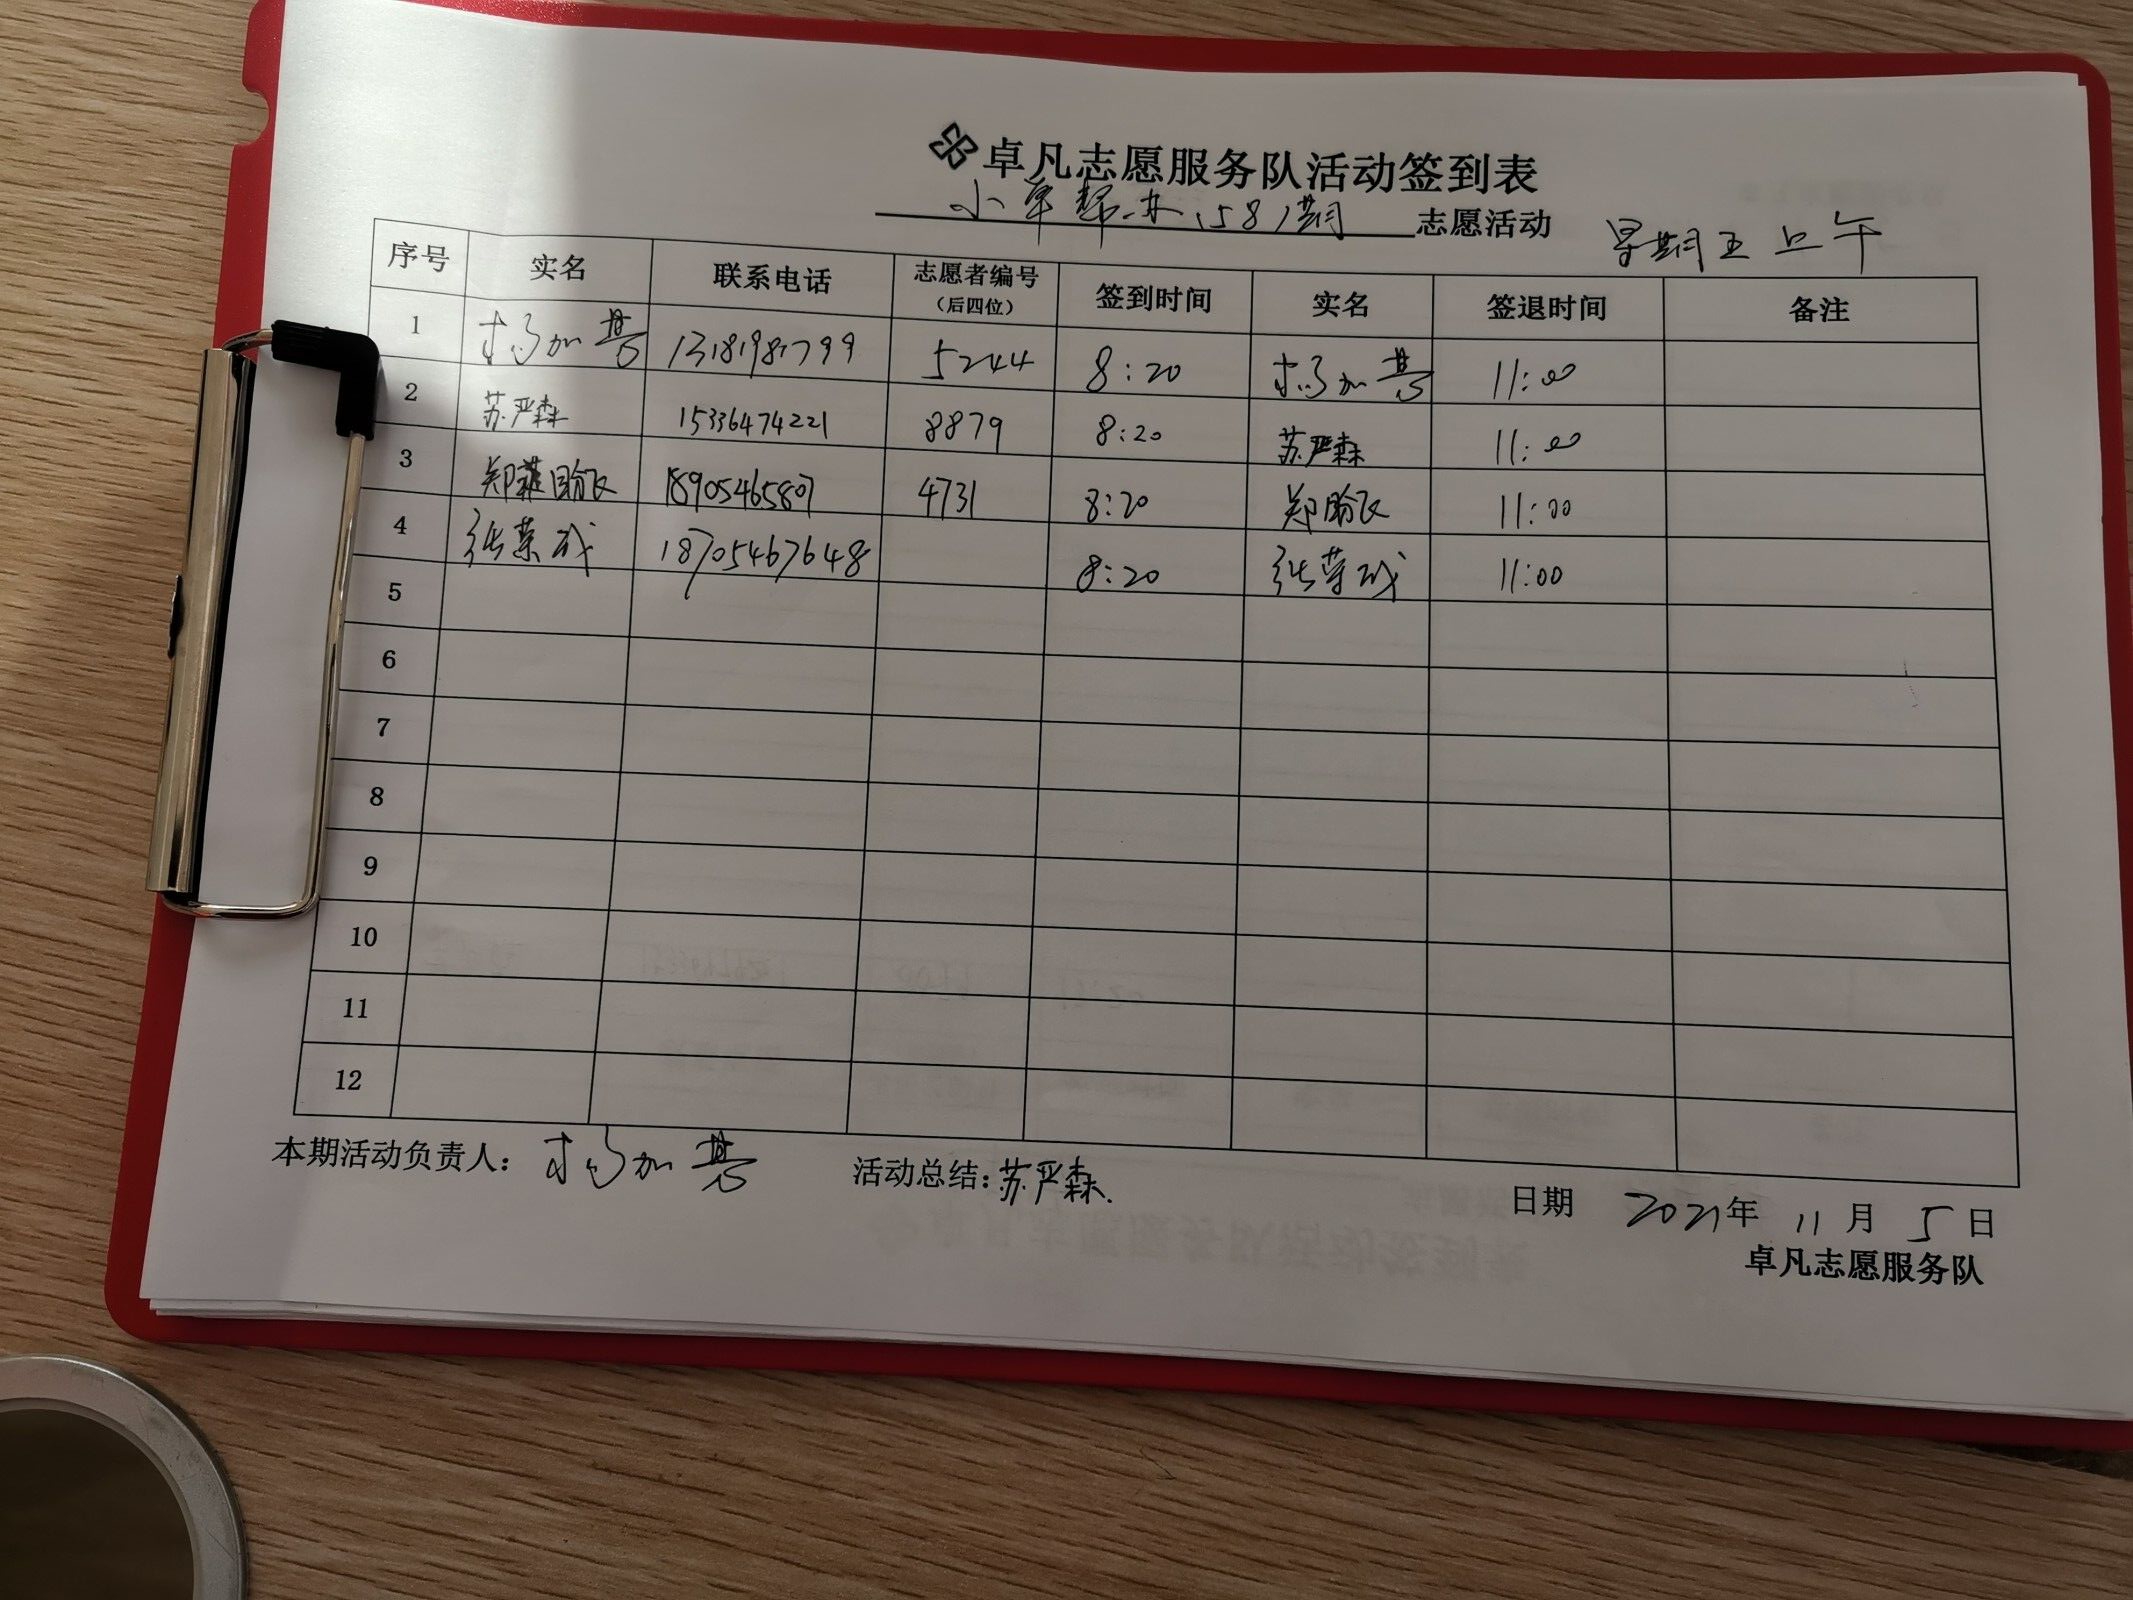 卓凡志愿服务队活动签到表
小卓帮办1581期 志愿活动 星期五上午
序号 实名 联系电话 志愿者编号（后四位） 签到时间 实名 签退时间 备注
1 13181981799 5244 8:20 11:00
2 苏严森 15336474221 8879 8:20 苏严森 11:00
3 郑 18905465807 4731 8:20 郑 11:00
4 张荣成 18705467648 8:20 张荣成 11:00
5
6
7
8
9
10
11
12
本期活动负责人： 活动总结：苏严森.
日期 2021年 11月 5日
卓凡志愿服务队